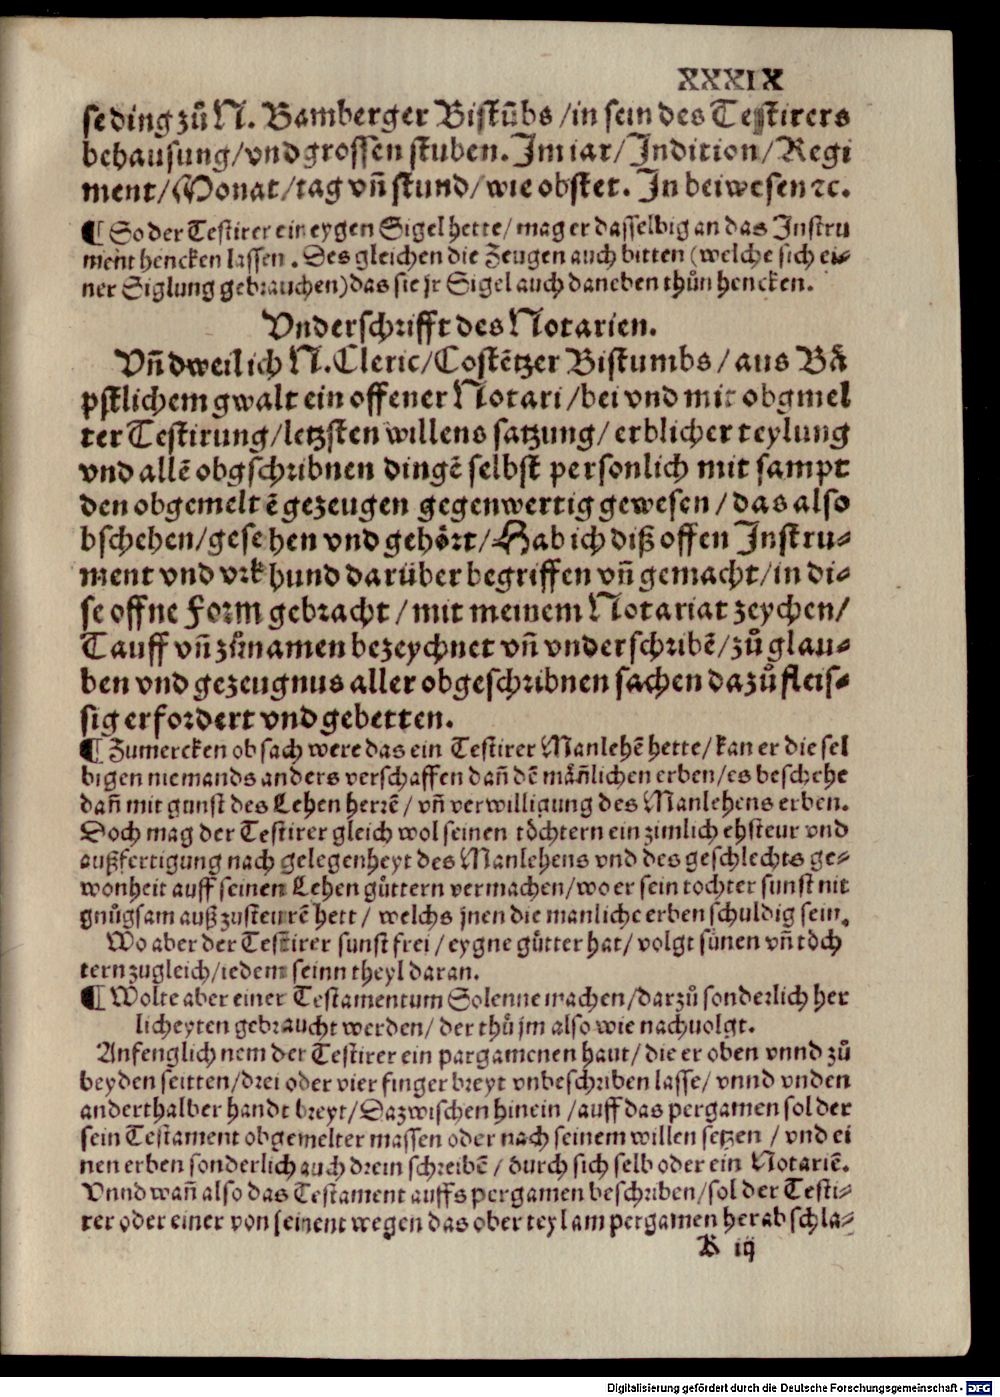 XXXIX
se ding zů N. Bamberger Bistūbs /in sein des Testirers
behausung/vnd grossen stuben. Im iar/Indition/Regi
ment/Monat/tag vn̄ stund/wie obstet. In beiwesen ꝛc.
¶ So der Testirer ein eygen Sigel hette/ mag er dasselbig an das Instru
ment hencken lassen. Des gleichen die Zeugen auch bitten (welche sich ei-
ner Siglung gebrauchen) das sie jr Sigel auch daneben thůn hencken.
Vnderschrifft des Notarien.
Vn̄ dweil ich N. Cleric/Costētzer Bistumbs/aus Bå
pstlichem gwalt ein offener Notari/bei vnd mit obgmel
ter Testirung/letzsten willens satzung/erblicher teylung
vnd allē obgschribnen dingē selbst personlich mit sampt
den obgemeltē gezeugen gegenwertig gewesen/das also
bschehen/gesehen vnd gehört/Hab ich diß offen Instru-
ment vnd vrkhund darüber begriffen vn̄ gemacht/in di-
se offne Form gebracht/mit meinem Notariat zeychen/
Tauff vn̄ zůnamen bezeychnet vn̄ vnderschribē/zů glau-
ben vnd gezeugnus aller obgeschribnen sachen dazů fleis-
sig erfordert vnd gebetten.
¶ Zumercken ob sach were das ein Testirer Manlehē hette/kan er die sel
bigen niemands anders verschaffen dan̄ dē mān̄lichen erben/es beschehe
dan̄ mit gunst des Lehen herrē/ vn̄ verwilligung des Manlehens erben.
Doch mag der Testirer gleich wol seinen töchtern ein zimlich ehsteur vnd
außfertigung nach gelegenheyt des Manlehens vnd des geschlechts ge-
wonheit auff seinen Lehen güttern vermachen/wo er sein tochter sunst nit
gnůgsam auß zusteurē hett/ welchs jnen die manliche erben schuldig sein.
Wo aber der Testirer sunst frei/eygne gütter hat/ volgt sünen vn̄ töch
tern zugleich/iedem seinn theyl daran.
¶ Wolte aber einer Testamentum Solenne machen/darzů sonderlich her
licheyten gebraucht werden/ der thů jm also wie nachuolgt.
Anfenglich nem der Testirer ein pargamenen haut/die er oben vnnd zů
beyden seitten/drei oder vier finger breyt vnbeschriben lasse/ vnnd vnden
anderthalber handt breyt/Dazwischen hinein/auff das pergamen sol der
sein Testament obgemelter massen oder nach seinem willen setzen/ vnd ei
nen erben sonderlich auch drein schreibē/durch sich selb oder ein Notariē.
Vnnd wan̄ also das Testament auffs pergamen beschriben/sol der Testi-
rer oder einer von seinent wegen das ober teyl am pergamen herab schla-
K iij
Digitalisierung gefördert durch die Deutsche Forschungsgemeinschaft - DFG